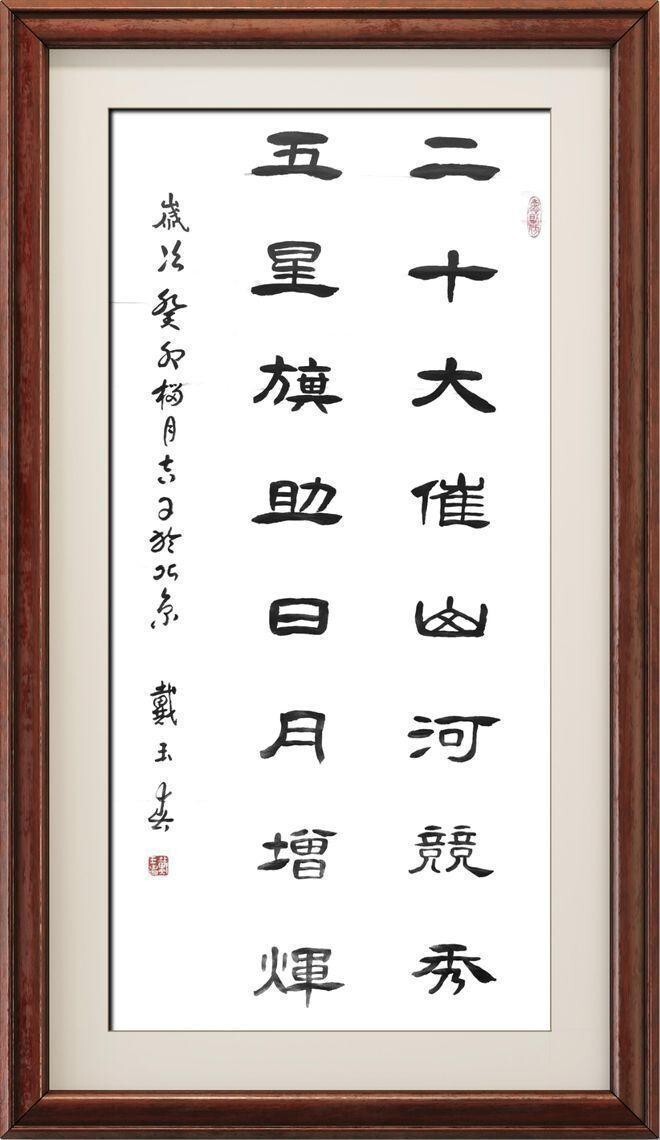 二十大催山河競秀
五星旗助日月增輝
歲次癸卯榴月吉日於北京 戴玉春